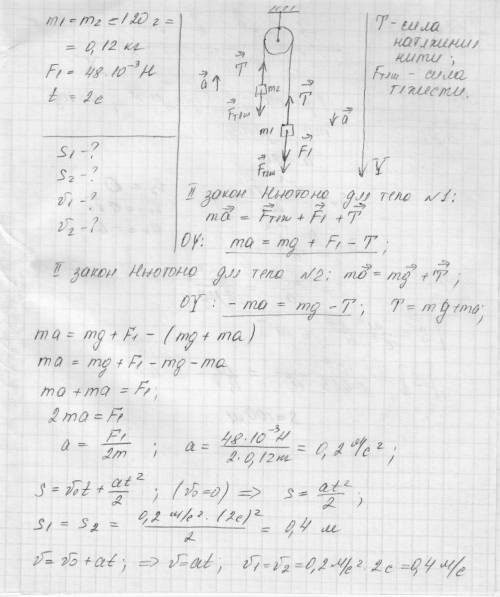 m₁ = m₂ = 120 г =
= 0,12 кг
F₁ = 48·10⁻³ Н
t = 2с
S₁ - ?
S₂ - ?
v₁ - ?
v₂ - ?
a⃗
T⃗
m₂
F⃗тяж
T⃗
m₁
F⃗₁
F⃗тяж
a⃗
Y
T - сила
натяжения
нити;
Fтяж - сила
тяжести.
II закон Ньютона для тела №1:
ma⃗ = F⃗тяж + F⃗₁ + T⃗
OY: ma = mg + F₁ - T;
II закон Ньютона для тела №2: ma⃗ = mg⃗ + T⃗;
OY: -ma = mg - T; T = mg + ma;
ma = mg + F₁ - (mg + ma)
ma = mg + F₁ - mg - ma
ma + ma = F₁;
2ma = F₁
a = F₁/2m; a = 48·10⁻³Н/2·0,12кг = 0,2 м/с²;
S = v₀t + at²/2; (v₀=0) => S = at²/2;
S₁ = S₂ = 0,2 м/с²·(2с)²/2 = 0,4 м
v = v₀ + at; => v = at; v₁ = v₂ = 0,2 м/с²·2с = 0,4 м/с